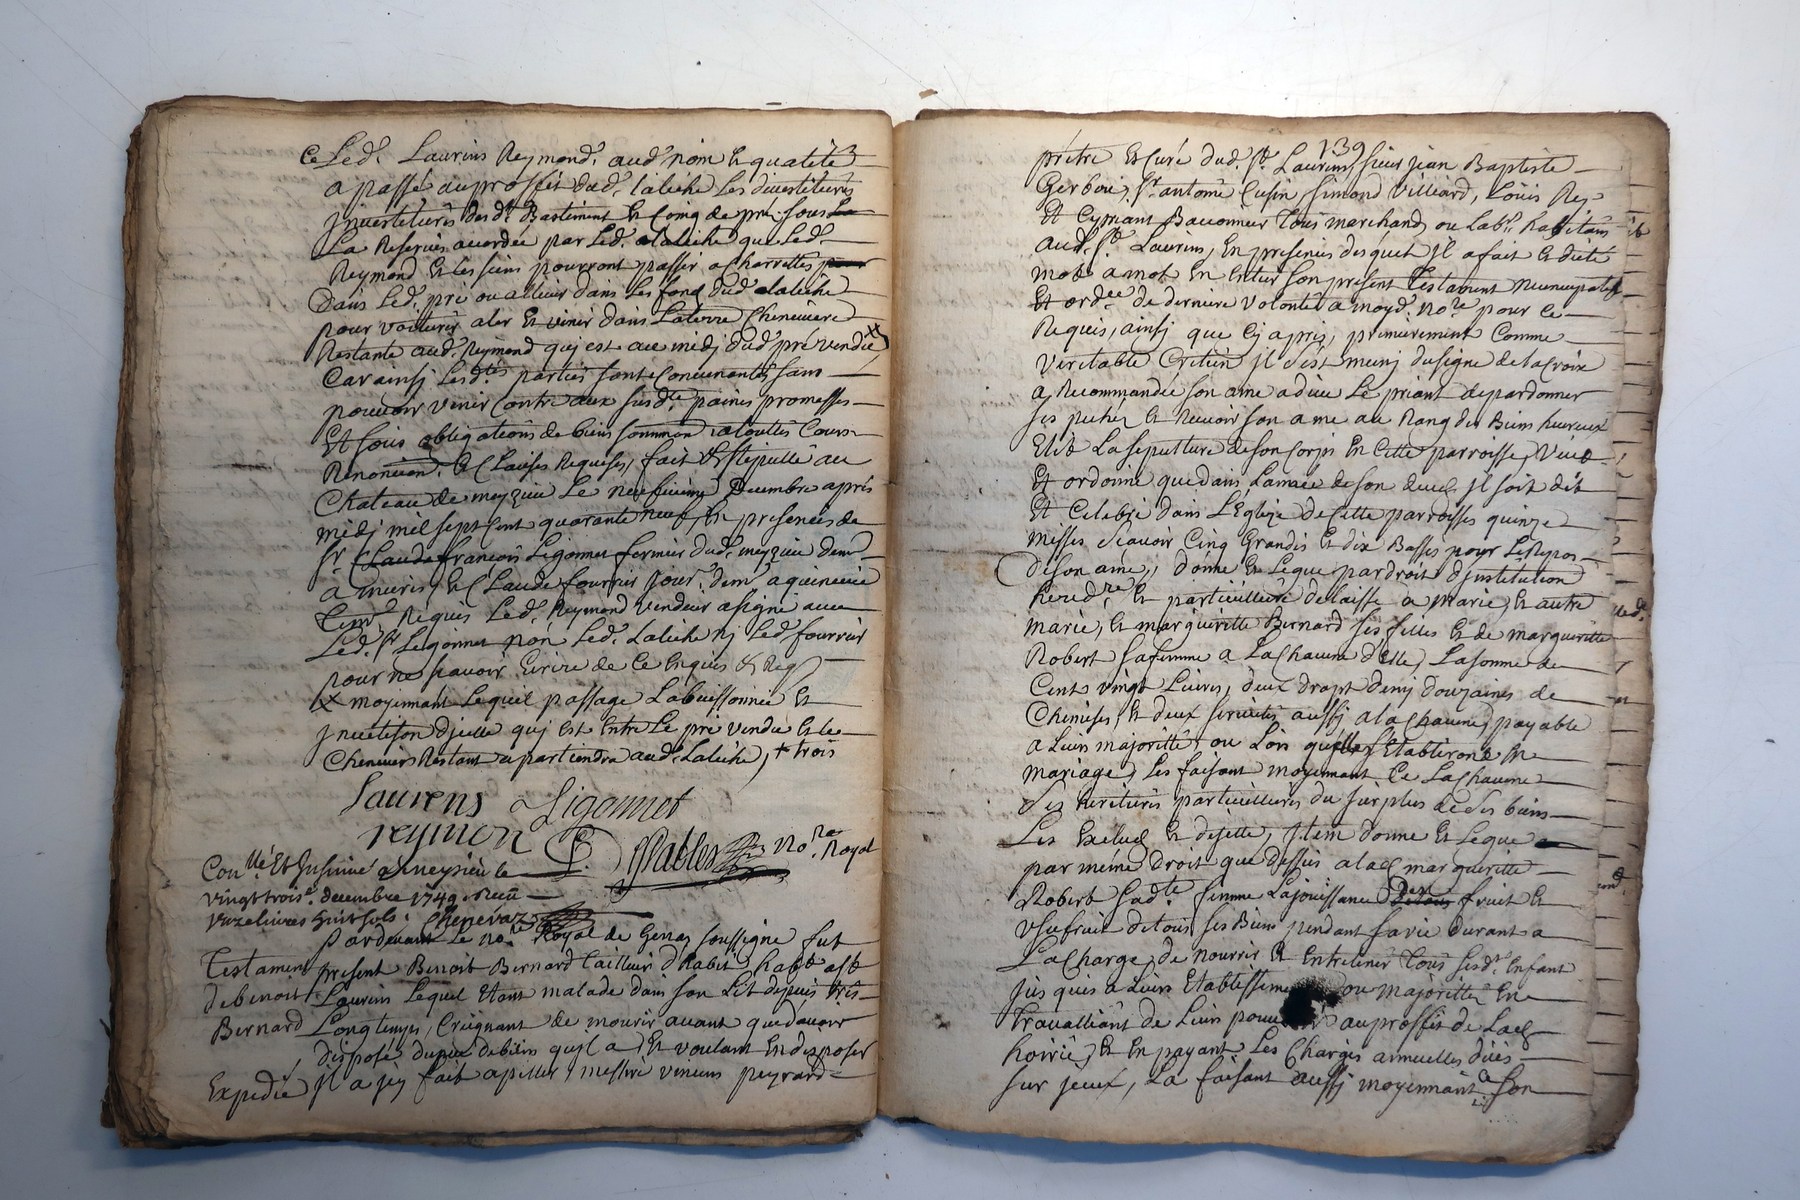 Ce Led. Laurens Reymond. aud. nom & qualité
a passé au proffit dud. Laleche les divestitures
jnvestitures desd. Bastiment & Coing de pré. sous
La Reserve accordée par Led. Laleche que Led.
Reymond & les siens pourront passer a Charrettes
Dans Led. pré ou allieur dans Les fond dud. Laleche
pour voiturer aler & venir dans La terre Cheneviere
Restante aud. Reymond quj est au midj dud. pré vendu
Car ainsj Lesd. parties sont Convenantes sans
pouvoir venir Contre aux susd. paines promesses
Et sous obligations de biens soummon a toutes Cours
Renoncion. & Clauses Requises, fait & stipullé au
Chateau de meyzieu Le neufvieme Decembre après
midj mil sept Cent quarante neuf, En presences de
Sr. Claude francois Ligonnet fermier dud. meyzieu dem.
a & Claude fourrier jour. dem. a
Requis Led. Reymond vendeur a signé avec
Led. Sr. Ligonnet non Led. Laleche nj Led. fourrier
pour ne scavoir Ecrire de Ce Enquis & Req.
X moyennant Lequel passage La buissonnée &
d'jcelle quj est Entre Le pré vendu & le
Chenevier Restant apartiendra aud. Laleche, + trois
Laurens Ligonnet
reymon
No.re Royal
Con.llé Et Insinué a meysieu le
vingt trois. decembre 1749. Recu
unze livres huit sols. Chenevaz
Pardevant Le No.re Royal de Genas soussigné fut
Testament present Benoit Bernard Tailleur d'habit, habt. a St.
de benoit Laurens Lequel Etant malade dans son Lit depuis
Bernard Longtemps, Creignant de mourir avant que davoir
disposé du peu de bien qu'il a, & voulant En disposer
Expedié jl a jcy fait apeller, messire peyrard
139
prêtre & Curé dud. St. Laurens, sieur jean Baptiste
Sr. antoine Cusin, Simond Villiard, Louis Rey
Et Bauonneur Tous marchands ou Lab.rs habitans
aud. St. Laurens, En presences desquels Jl a fait & dicté
mot a mot En Entier son present Testament nuncupatif
Et ord.ce de derniere volonté a moyd. No.re pour Ce
Requis, ainsj que Cy après, premierement Comme
Veritable Cretien jl s'est munj du signe de la Croix
a Recommandée son ame a dieu Le priant de pardonner
ses pechez & Recevoir son ame au Rang des Biens heureux
Elit La sepulture de son Corps En Cette parroisse, Veut
Et ordonne que dans L'année de son decès jl soit dit
Et Celebré dans L'Eglise de Cette parroisses quinze
messes scavoir Cinq Grandes & dix Basses pour Le Repos
de son ame, donne & Legue par droit d'jnstitution
hered.re & particulliere delaisse a marie, & autre
marie, & margueritte Bernard ses filles & de margueritte
Robert sa femme a La Chacune d'Elle, La somme de
Cent vingt Livres, deux drapt demj douzaines de
Chemises, & deux serviettes aussj a la Chacune, payable
a Leurs majoritté, ou Lors qu'elles s'Etabliront En
mariage, Les faisant moyennant Ce La Chacune
Ses heritieres particullieres du surplus de ses biens
Les Exclud & dejette, Jtem donne & Legue
par même Droit que dessus a lad. margueritte
Robert sad.te femme La jouissance fruit &
Usufruit de tous ses Biens pendant sa vie durant a
La Charge, de nourrir & Entretenir Tous sesd. Enfant
jusques a Leurs Etablissement ou majoritté En
travalliant de Leurs pouvoirs au proffit de Lad.
hoirie, & En payant Les Charges annuelles dües
sur jceux, La faisant aussj moyennant Ce Son